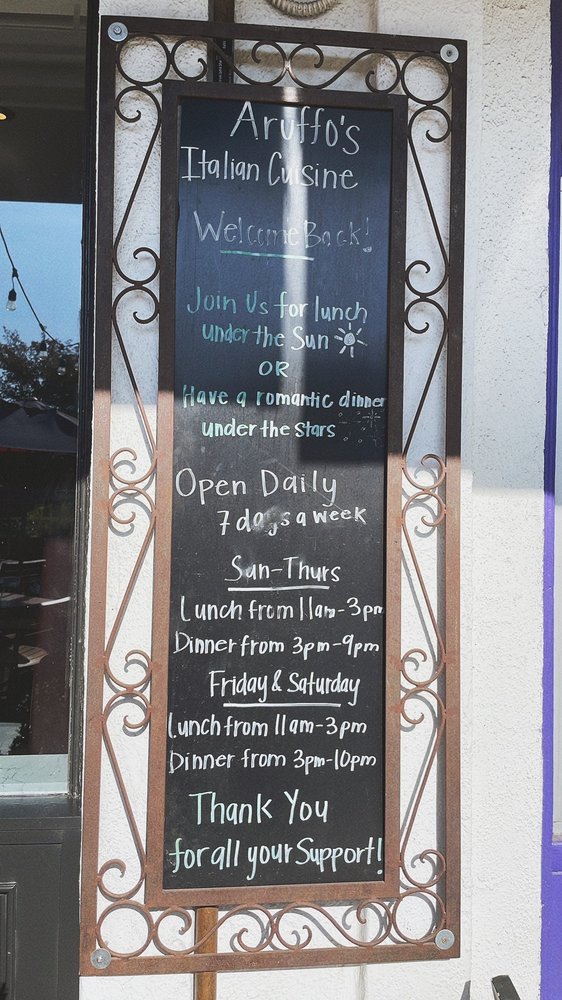 Aruffo's
Italian Cuisine
Welcome Back!
Join Us for lunch
under the Sun
OR
Have a romantic dinner
under the stars
Open Daily
7 days a week
Sun-Thurs
Lunch from 11am-3pm
Dinner from 3pm-9pm
Friday & Saturday
Lunch from 11am-3pm
Dinner from 3pm-10pm
Thank You
for all your Support!